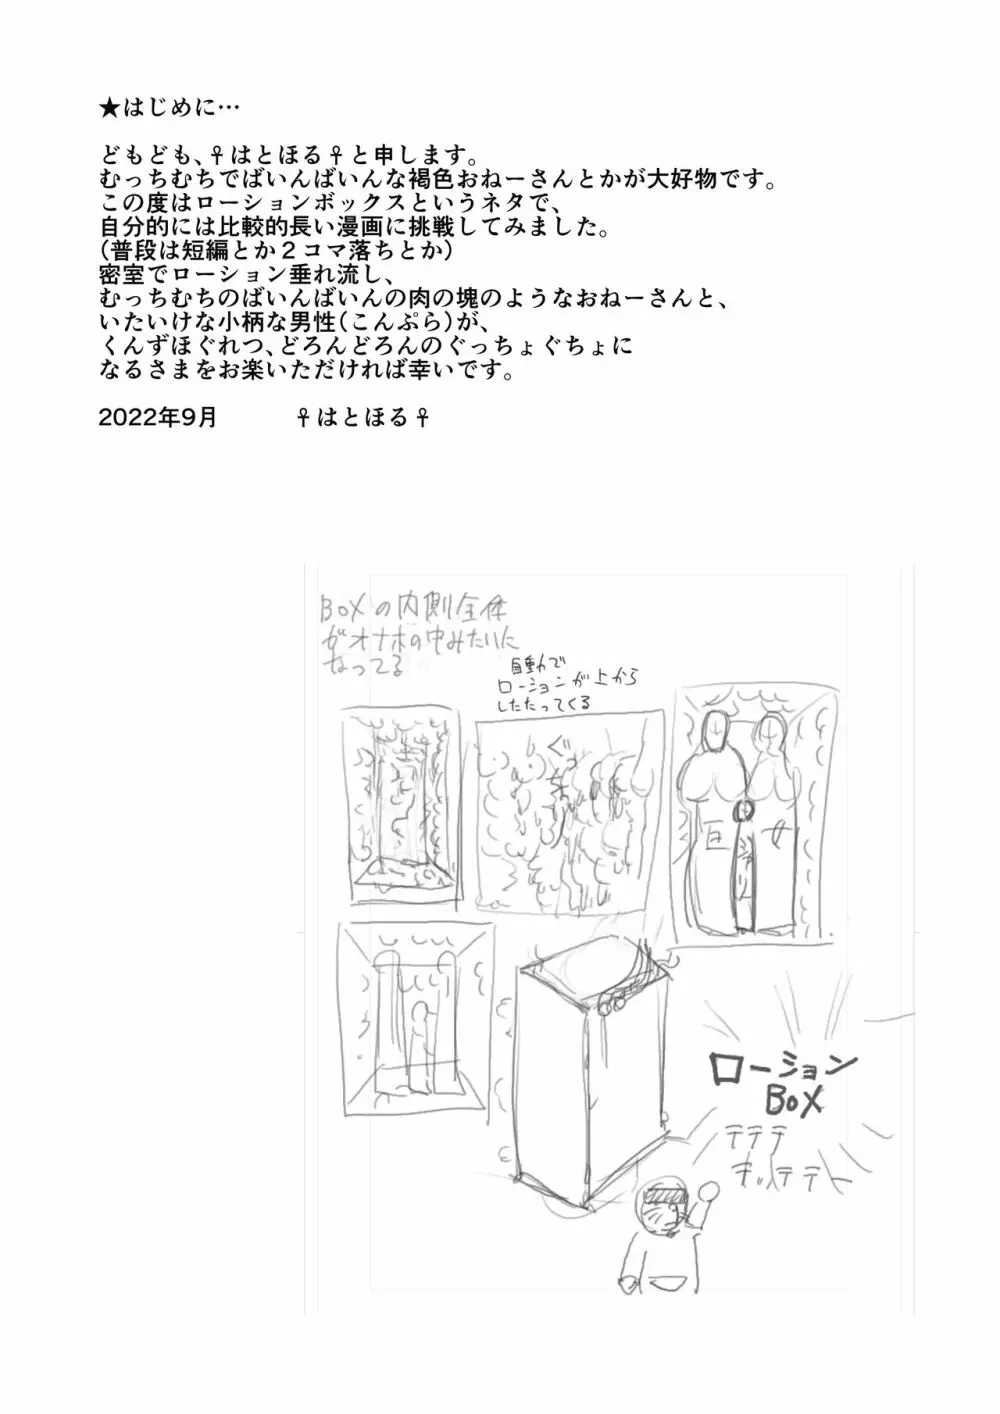 ★はじめに…
どもども、♀はとほる♀と申します。
むっちむちでばいんばいんな褐色おねーさんとかが大好物です。
この度はローションボックスというネタで、
自分的には比較的長い漫画に挑戦してみました。
(普段は短編とか２コマ落ちとか)
密室でローション垂れ流し、
むっちむちのばいんばいんの肉の塊のようなおねーさんと、
いたいけな小柄な男性(こんぷら)が、
くんずほぐれつ、どろんどろんのぐっちょぐちょに
なるさまをお楽いただければ幸いです。
2022年9月 ♀はとほる♀
BOXの内側全体
がオナホの中みたいに
なってる
自動で
ローションが上から
したたってくる
巨 女
ローション
BOX
テテテ